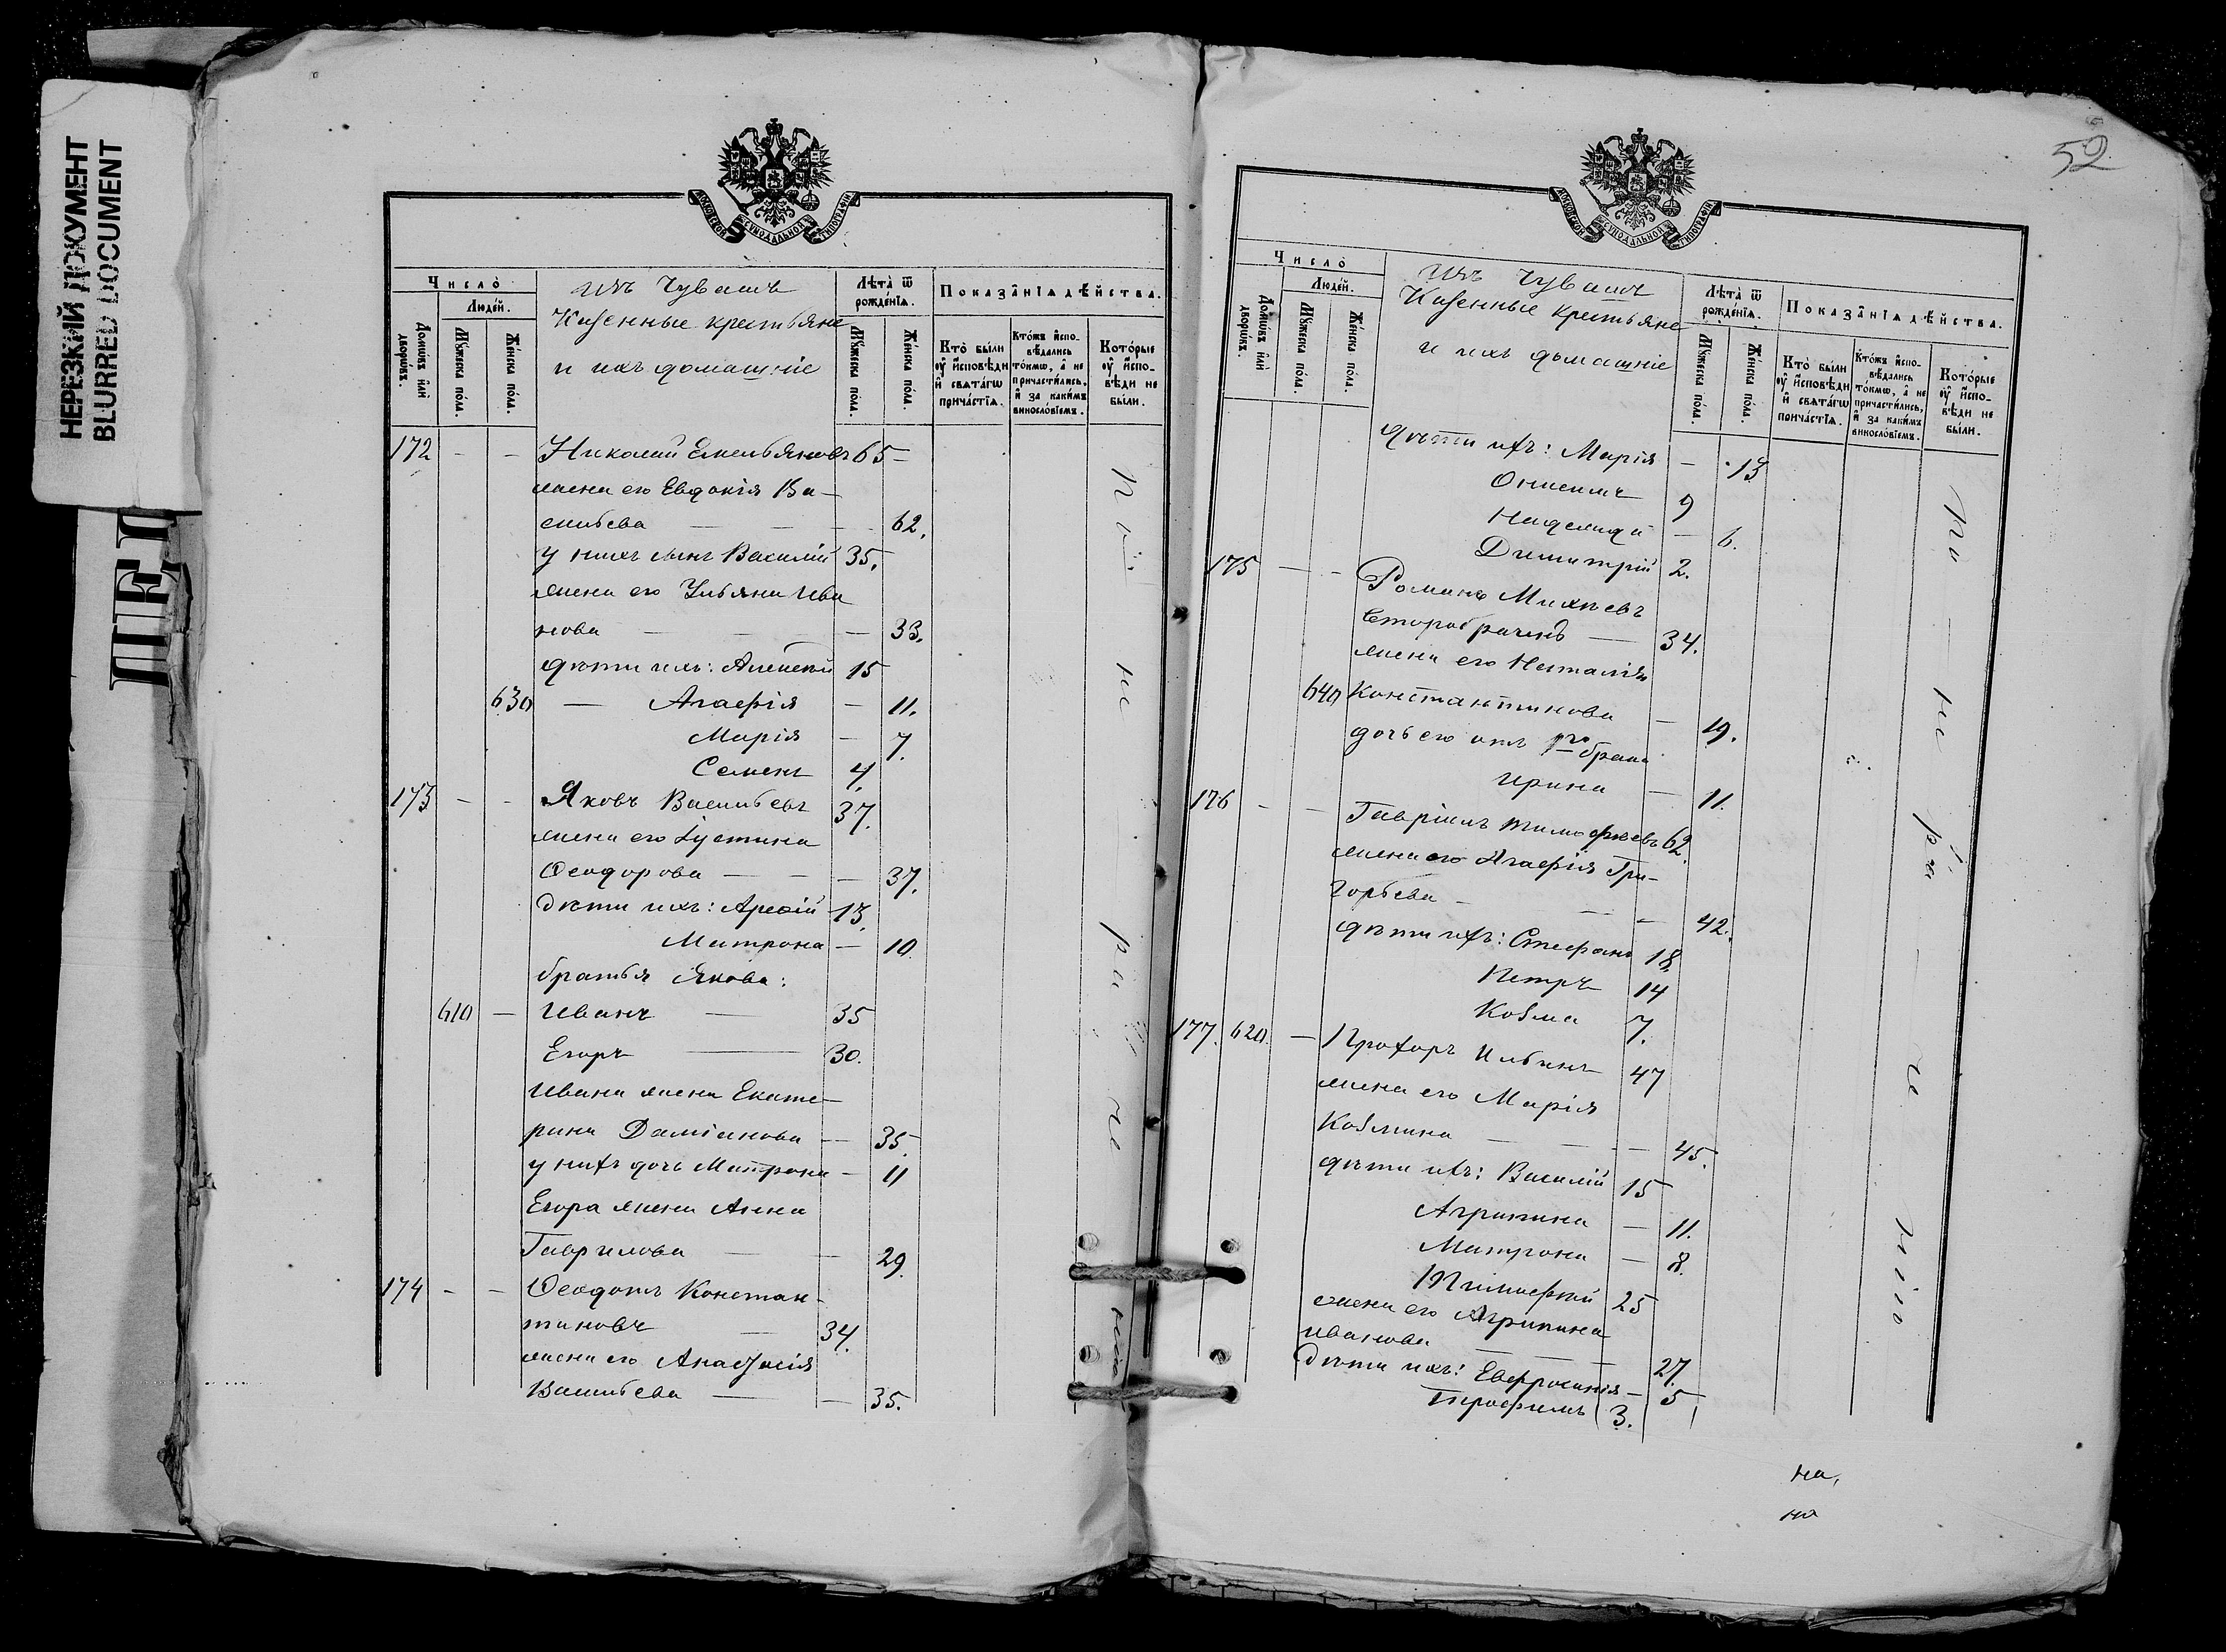 НЕРЕЗКИЙ ДОКУМЕНТ
BLURRED DOCUMENT
МОСКОВСКОЙ СУНОДАЛЬНОЙ ТИПОГРАФІИ
Число
Людей.
Домовъ или дворовъ.
Мужеска пола.
Женска пола.
Изъ Чувашъ
Казенные крестьяне
и ихъ домашніе
Лѣта ѿ рожденія.
Мужеска пола.
Женска пола.
Показанія дѣйства.
Кто были у исповѣди и святагѡ причастія.
Ктожъ исповѣдались токмѡ, а не причастились, и за какимъ винословіемъ.
Которые у исповѣди не были.
172 - - Николай Емельяновъ 65 -
жена его Евдокія Ва-
сильева — — - 62.
у нихъ сынъ Василій 35.
жена его Ульяна Ива
нова — — — 33.
дѣти ихъ: Алексѣй 15
630 — Агафія — 11.
Марія — 7.
Семенъ 4.
173 - - Яковъ Васильевъ 37.
жена его Іустина
Ѳеодорова — — — 37.
Дѣти ихъ: Арсеній 13.
Матрона — 10.
братья Якова:
610 — Иванъ — 35
Егоръ — 30.
Ивана жена Екате-
рина Даміанова — 35.
у нихъ дочь Матрона — 11
Егора жена Анна
Гаврилова — — 29.
174 - - Ѳеодотъ Констан-
тиновъ — 34.
жена его Анастасія
Васильева — — 35.
52
МОСКОВСКОЙ СУНОДАЛЬНОЙ ТИПОГРАФІИ
Число
Людей.
Домовъ или дворовъ.
Мужеска пола.
Женска пола.
Изъ Чувашъ
Казенные крестьяне
и ихъ домашніе
Лѣта ѿ рожденія.
Мужеска пола.
Женска пола.
Показанія дѣйства.
Кто были у исповѣди и святагѡ причастія.
Ктожъ исповѣдались токмѡ, а не причастились, и за какимъ винословіемъ.
Которые у исповѣди не были.
Дѣти ихъ: Марія — 13
Онисимъ 9
— 6.
Димитрій 2.
175 — - Романъ Михѣевъ
второбрачный — 34.
жена его Наталія
640 Константинова — 19.
дочь его отъ 1го брака
Ирина — 11.
176 - - Гавріилъ Тимофѣевъ 62.
жена его Агафія Гри-
горьева — — — 42.
дѣти ихъ: Стефанъ 18.
Петръ 14
Козма 7.
177. 620. — Прохоръ Ильинъ 47
жена его Марія
Козмина — — — 45.
дѣти ихъ: Василій 15
Агрипина — 11.
Матрона — 8.
Тимофей 25
жена его Агрипина
Иванова — — — 27.
Дѣти ихъ: Евфросинія — 5
Трофимъ 3.